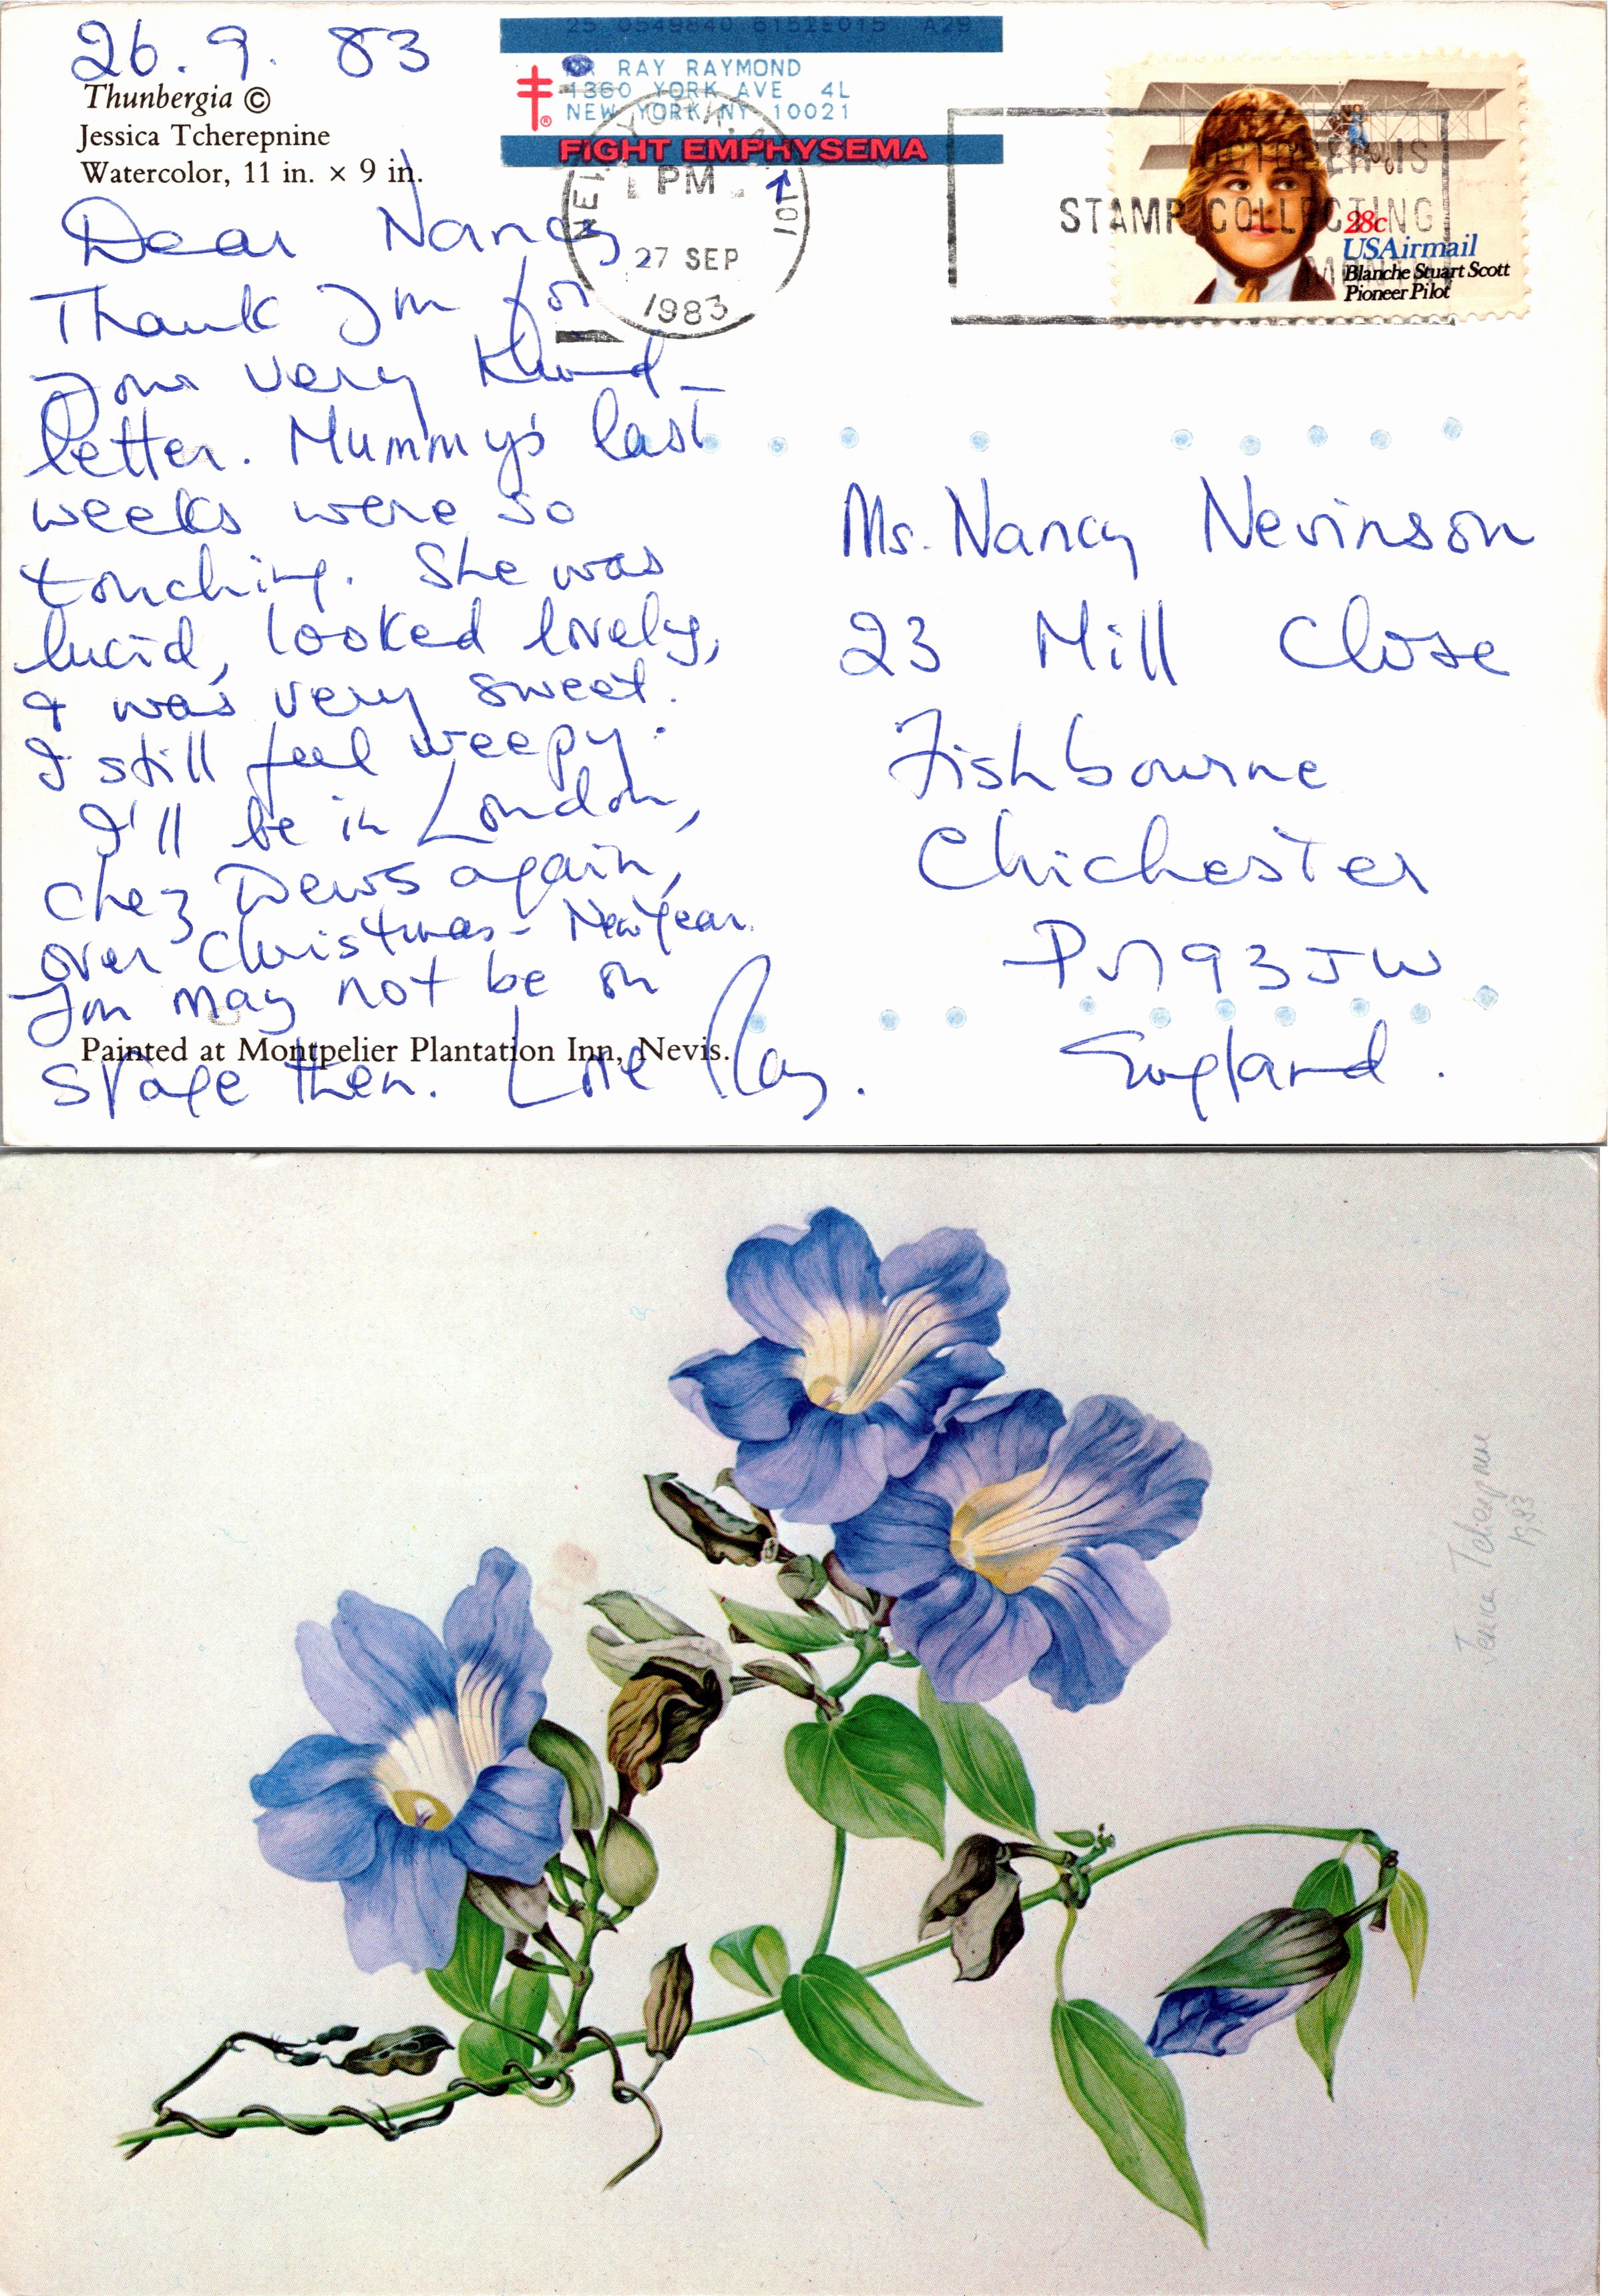 26. 9. 83
Thunbergia ©
Jessica Tcherepnine
Watercolor, 11 in. × 9 in.
Dear Nancy,
Thank you for
your very kind
letter. Mummy's last
weeks were so
touching. She was
lucid, looked lovely,
& was very sweet.
I still feel weepy.
I'll be in London,
chez Dews again,
over Christmas - New Year.
You may not be on
Painted at Montpelier Plantation Inn, Nevis.
stage then. Love Ray.
25 0549840 6152E015 A29
RAY RAYMOND
1360 YORK AVE 4L
NEW YORK NY 10021
FIGHT EMPHYSEMA
NEW YORK, N.Y.
PM
27 SEP
1983
101
OCTOBER IS
STAMP COLLECTING
MONTH
28c
USAirmail
Blanche Stuart Scott
Pioneer Pilot
Ms. Nancy Nevinson
23 Mill Close
Fishbourne
Chichester
PO193JW
England.
Jessica Tcherepnine
1983